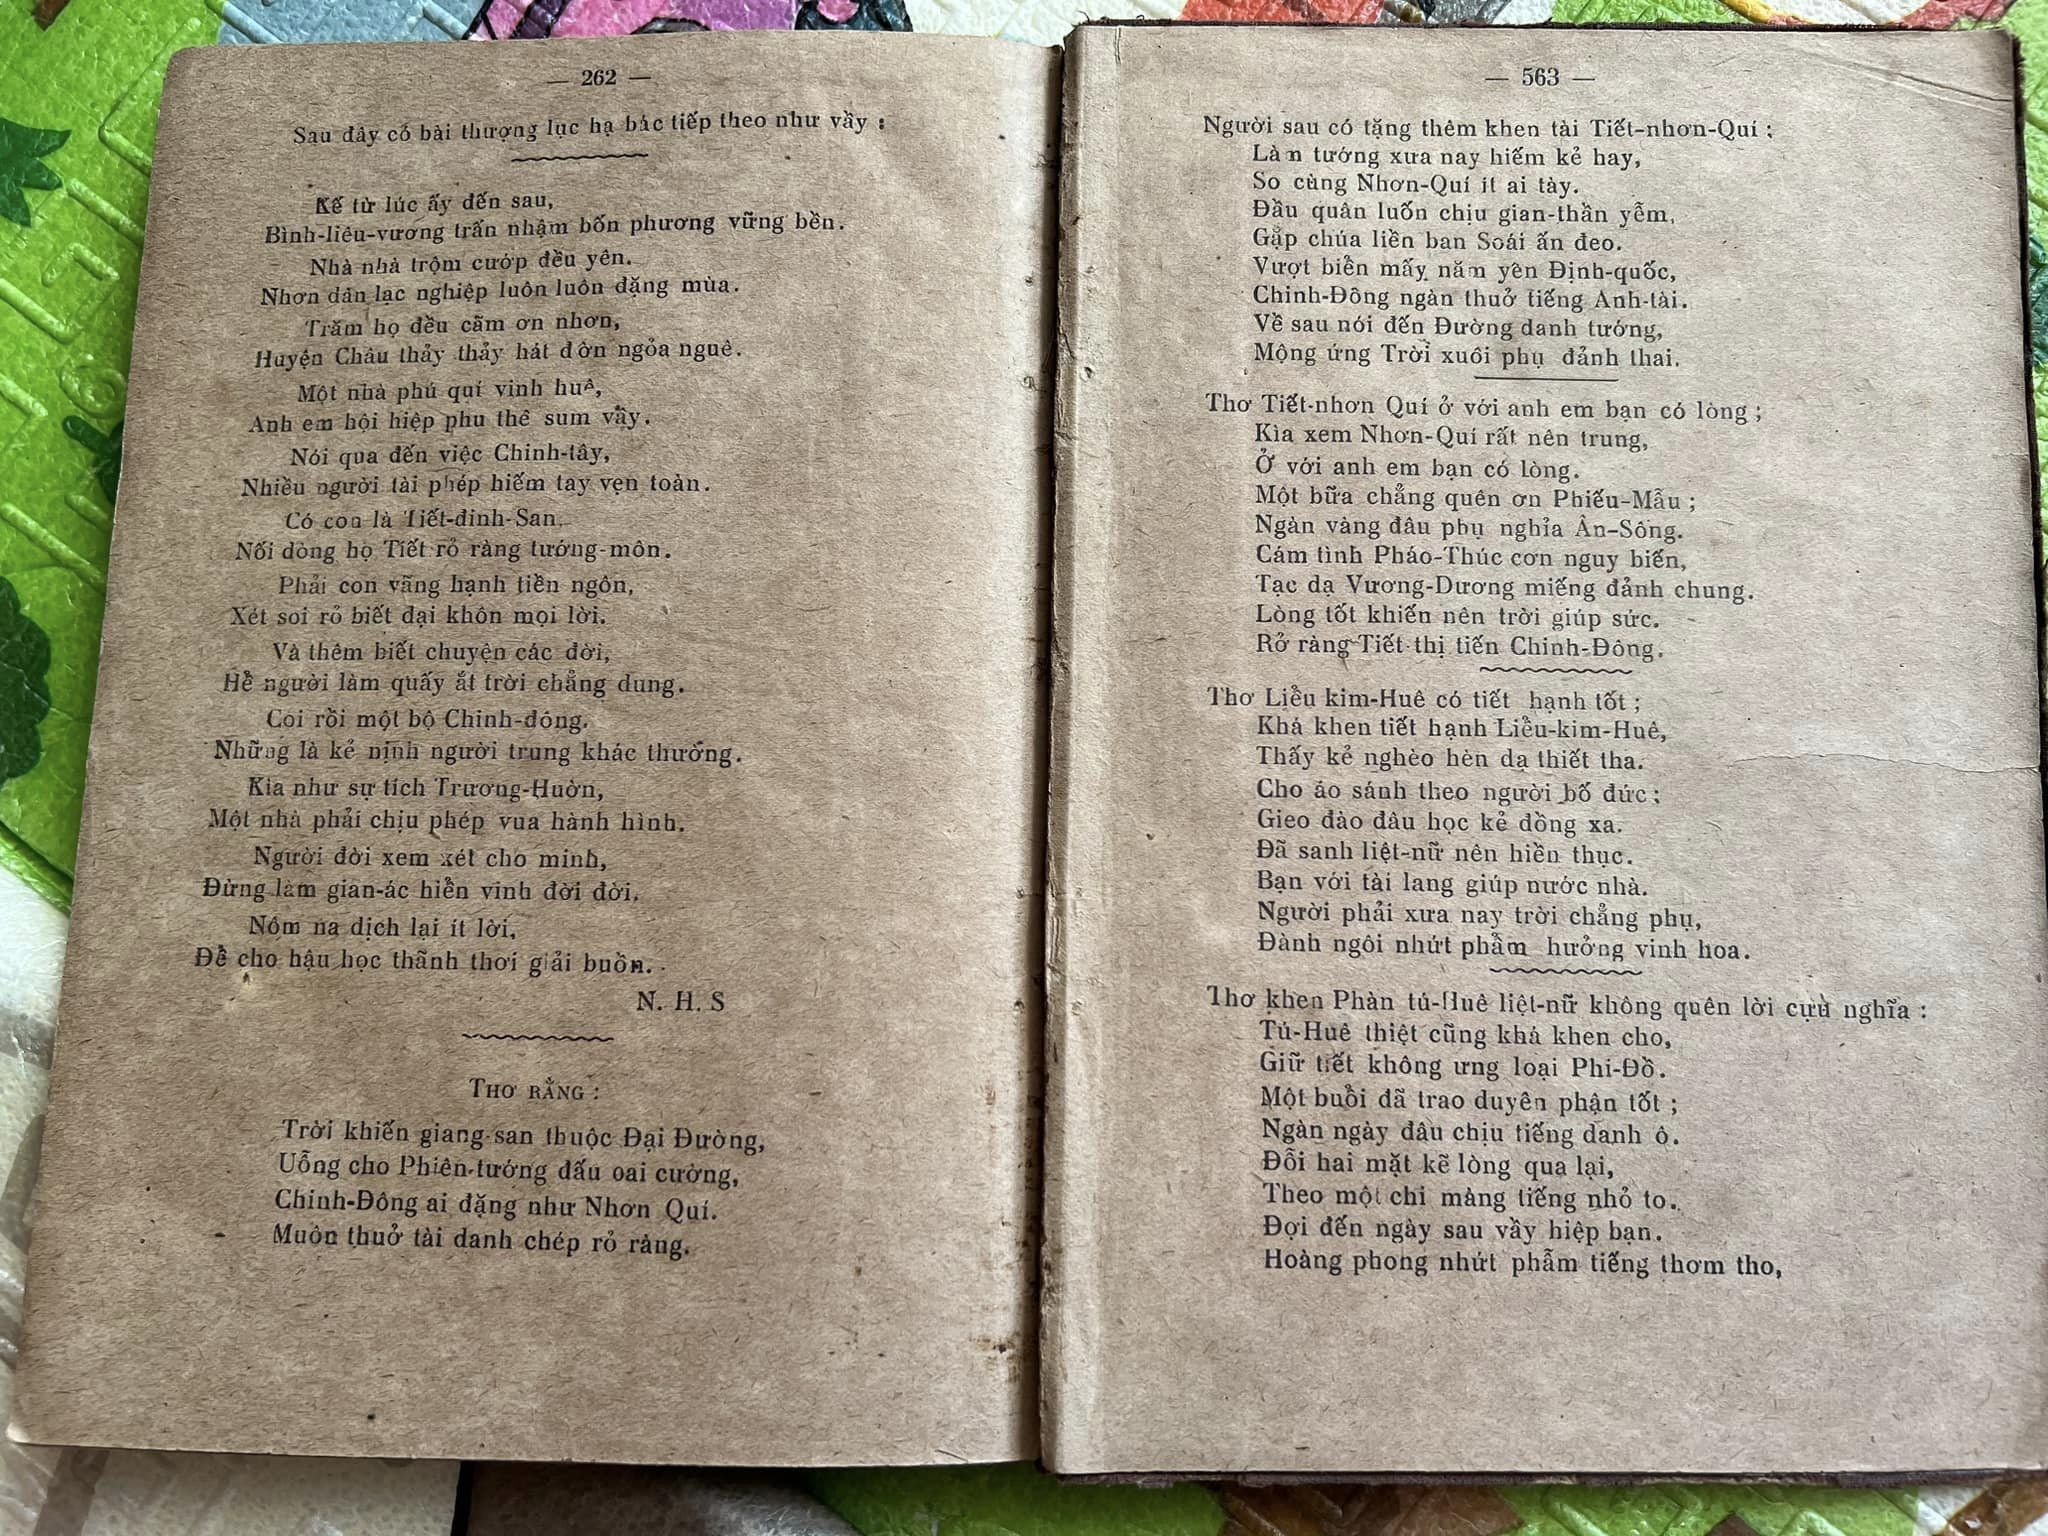 — 262 —
Sau đây có bài thượng lục hạ bác tiếp theo như vầy :
Kế từ lúc ấy đến sau,
Bình-liêu-vương trấn nhậm bốn phương vững bền.
Nhà nhà trộm cướp đều yên.
Nhơn dân lạc nghiệp luôn luôn đặng mùa.
Trăm họ đều cãm ơn nhơn,
Huyện Châu thảy thảy hát đờn ngỏa nguê.
Một nhà phú quí vinh huê,
Anh em hội hiệp phu thê sum vầy.
Nói qua đến việc Chinh-tây,
Nhiều người tài phép hiếm tay vẹn toàn.
Có con là Tiết-đinh-San,
Nối dòng họ Tiết rỏ ràng tướng-môn.
Phải con vãng hạnh tiền ngôn,
Xét soi rỏ biết đại khôn mọi lời.
Và thêm biết chuyện các đời,
Hễ người làm quấy ắt trời chẳng dung.
Coi rồi một bộ Chinh-đông,
Những là kẻ nịnh người trung khác thường.
Kìa như sự tích Trương-Huờn,
Một nhà phải chịu phép vua hành hình.
Người đời xem xét cho minh,
Đừng làm gian-ác hiển vinh đời đời.
Nôm na dịch lại ít lời,
Để cho hậu học thãnh thơi giải buồn.
N. H. S
THƠ RẰNG :
Trời khiến giang-san thuộc Đại Đường,
Uỗng cho Phiên-tướng đấu oai cường,
Chinh-Đông ai đặng như Nhơn Quí.
Muôn thuở tài danh chép rỏ ràng.
— 563 —
Người sau có tặng thêm khen tài Tiết-nhơn-Quí ;
Làm tướng xưa nay hiếm kẻ hay,
So cùng Nhơn-Quí ít ai tày.
Đầu quân luốn chịu gian-thần yễm,
Gặp chúa liền ban Soái ấn đeo.
Vượt biển mấy năm yên Định-quốc,
Chinh-Đông ngàn thuở tiếng Anh-tài.
Về sau nói đến Đường danh tướng,
Mộng ứng Trời xuôi phụ đảnh thai.
Thơ Tiết-nhơn Quí ở với anh em bạn có lòng ;
Kìa xem Nhơn-Quí rất nên trung,
Ở với anh em bạn có lòng.
Một bữa chẳng quên ơn Phiếu-Mẫu ;
Ngàn vàng đâu phụ nghỉa Ân-Sông.
Cám tình Pháo-Thúc cơn nguy biến,
Tạc dạ Vương-Dương miếng đảnh chung.
Lòng tốt khiến nên trời giúp sức.
Rở ràng Tiết-thị tiến Chinh-Đông.
Thơ Liễu kim-Huê có tiết hạnh tốt ;
Khá khen tiết hạnh Liễu-kim-Huê,
Thấy kẻ nghèo hèn dạ thiết tha.
Cho áo sánh theo người bố đức ;
Gieo đào đâu học kẻ đồng xa.
Đã sanh liệt-nữ nên hiền thục.
Bạn với tài lang giúp nước nhà.
Người phải xưa nay trời chẳng phụ,
Đành ngôi nhứt phẩm hưởng vinh hoa.
Thơ khen Phàn tú-Huê liệt-nữ không quên lời cựu nghĩa :
Tú-Huê thiệt cũng khá khen cho,
Giữ tiết không ưng loại Phi-Đồ.
Một buổi đã trao duyên phận tốt ;
Ngàn ngày đâu chịu tiếng danh ô.
Đỗi hai mặt kẽ lòng qua lại,
Theo một chi màng tiếng nhỏ to.
Đợi đến ngày sau vầy hiệp bạn.
Hoàng phong nhứt phẩm tiếng thơm tho,